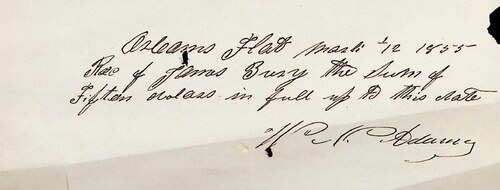 Orleans Flat March 12 1855
Rec of James Bury the Sum of
Fiften dolars in full up to this date
W. N. Adams